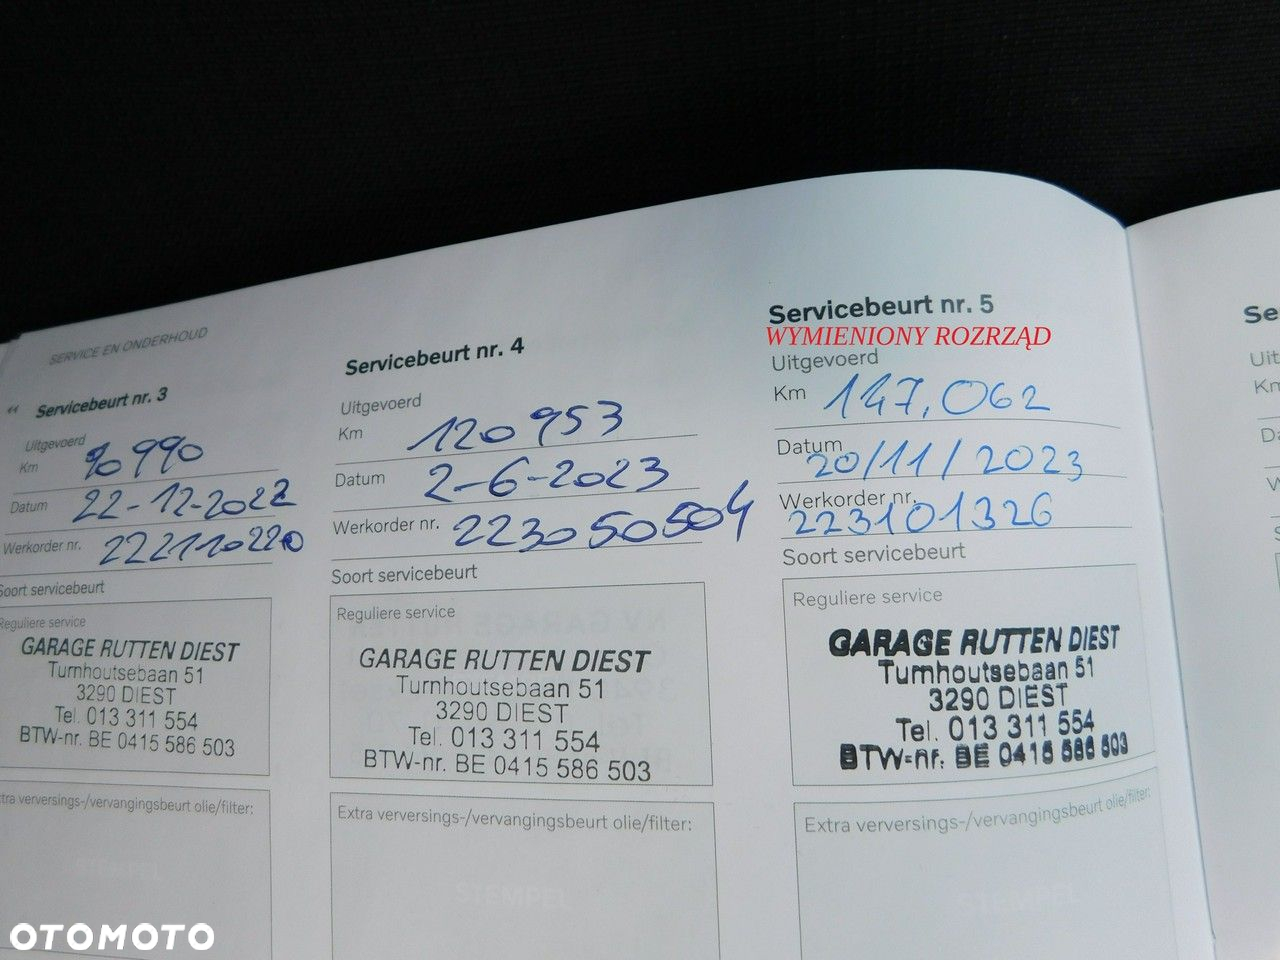 SERVICE EN ONDERHOUD
Servicebeurt nr. 3
Uitgevoerd
Km 90990
Datum 22-12-2022
Werkorder nr.
Soort servicebeurt
Reguliere service
GARAGE RUTTEN DIEST
Turnhoutsebaan 51
3290 DIEST
Tel. 013 311 554
BTW-nr. BE 0415 586 503
xtra verversings-/vervangingsbeurt olie/filter:
STEMPEL
Servicebeurt nr. 4
Uitgevoerd
Km 120 953
Datum 2-6-2023
Werkorder nr. 223050504
Soort servicebeurt
Reguliere service
GARAGE RUTTEN DIEST
Turnhoutsebaan 51
3290 DIEST
Tel. 013 311 554
BTW-nr. BE 0415 586 503
Extra verversings-/vervangingsbeurt olie/filter:
STEMPEL
Servicebeurt nr. 5
WYMIENIONY ROZRZĄD
Uitgevoerd
Km 147.062
Datum 20/11/2023
Werkorder nr. 223101326
Soort servicebeurt
Reguliere service
GARAGE RUTTEN DIEST
Turnhoutsebaan 51
3290 DIEST
Tel. 013 311 554
BTW-nr. BE 0415 586 503
Extra verversings-/vervangingsbeurt olie/filter:
STEMPEL
Se
Uit
Km
OTOMOTO